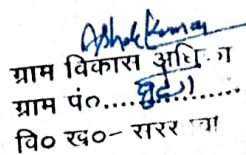 Ashok Kumar
ग्राम विकास अधि
ग्राम पं०.....
वि० ख०- सरर